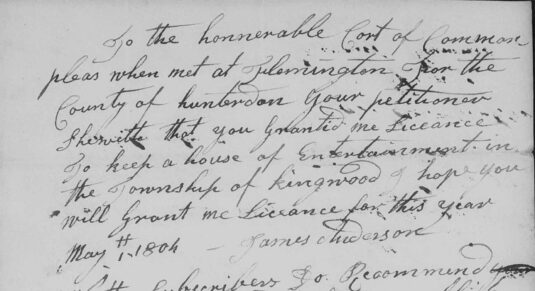 To the honnerable Cort of Common
pleas when met at Flemington For the
County of hunterdon Your petitioner
Sheweth that you Granted me Liceance
To keep a house of Entertainment in
the Township of kingwood I hope you
will Grant me Liceance for this year
May 1th 1804 James Anderson
Subscribers Do Recommend